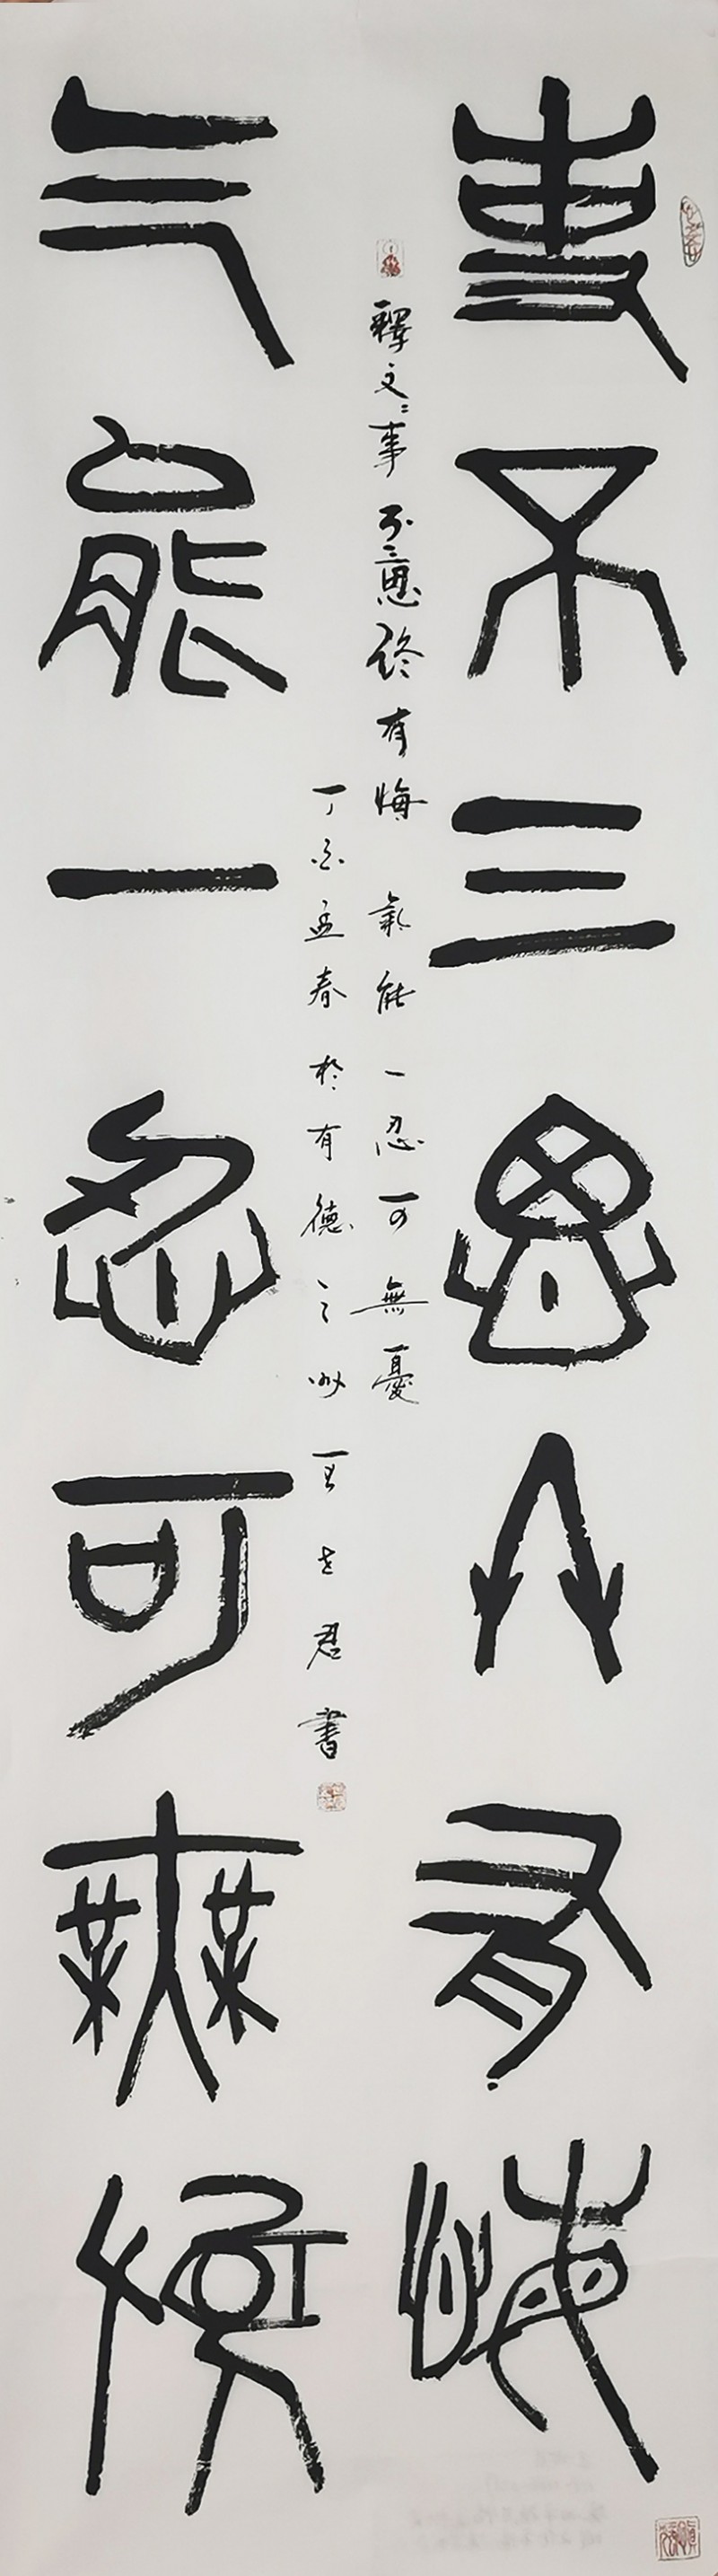 事不三思終有悔
釋文：事不三思終有悔 氣能一忍可無憂
丁亥孟春於有德之
君書
气能一忍可無憂